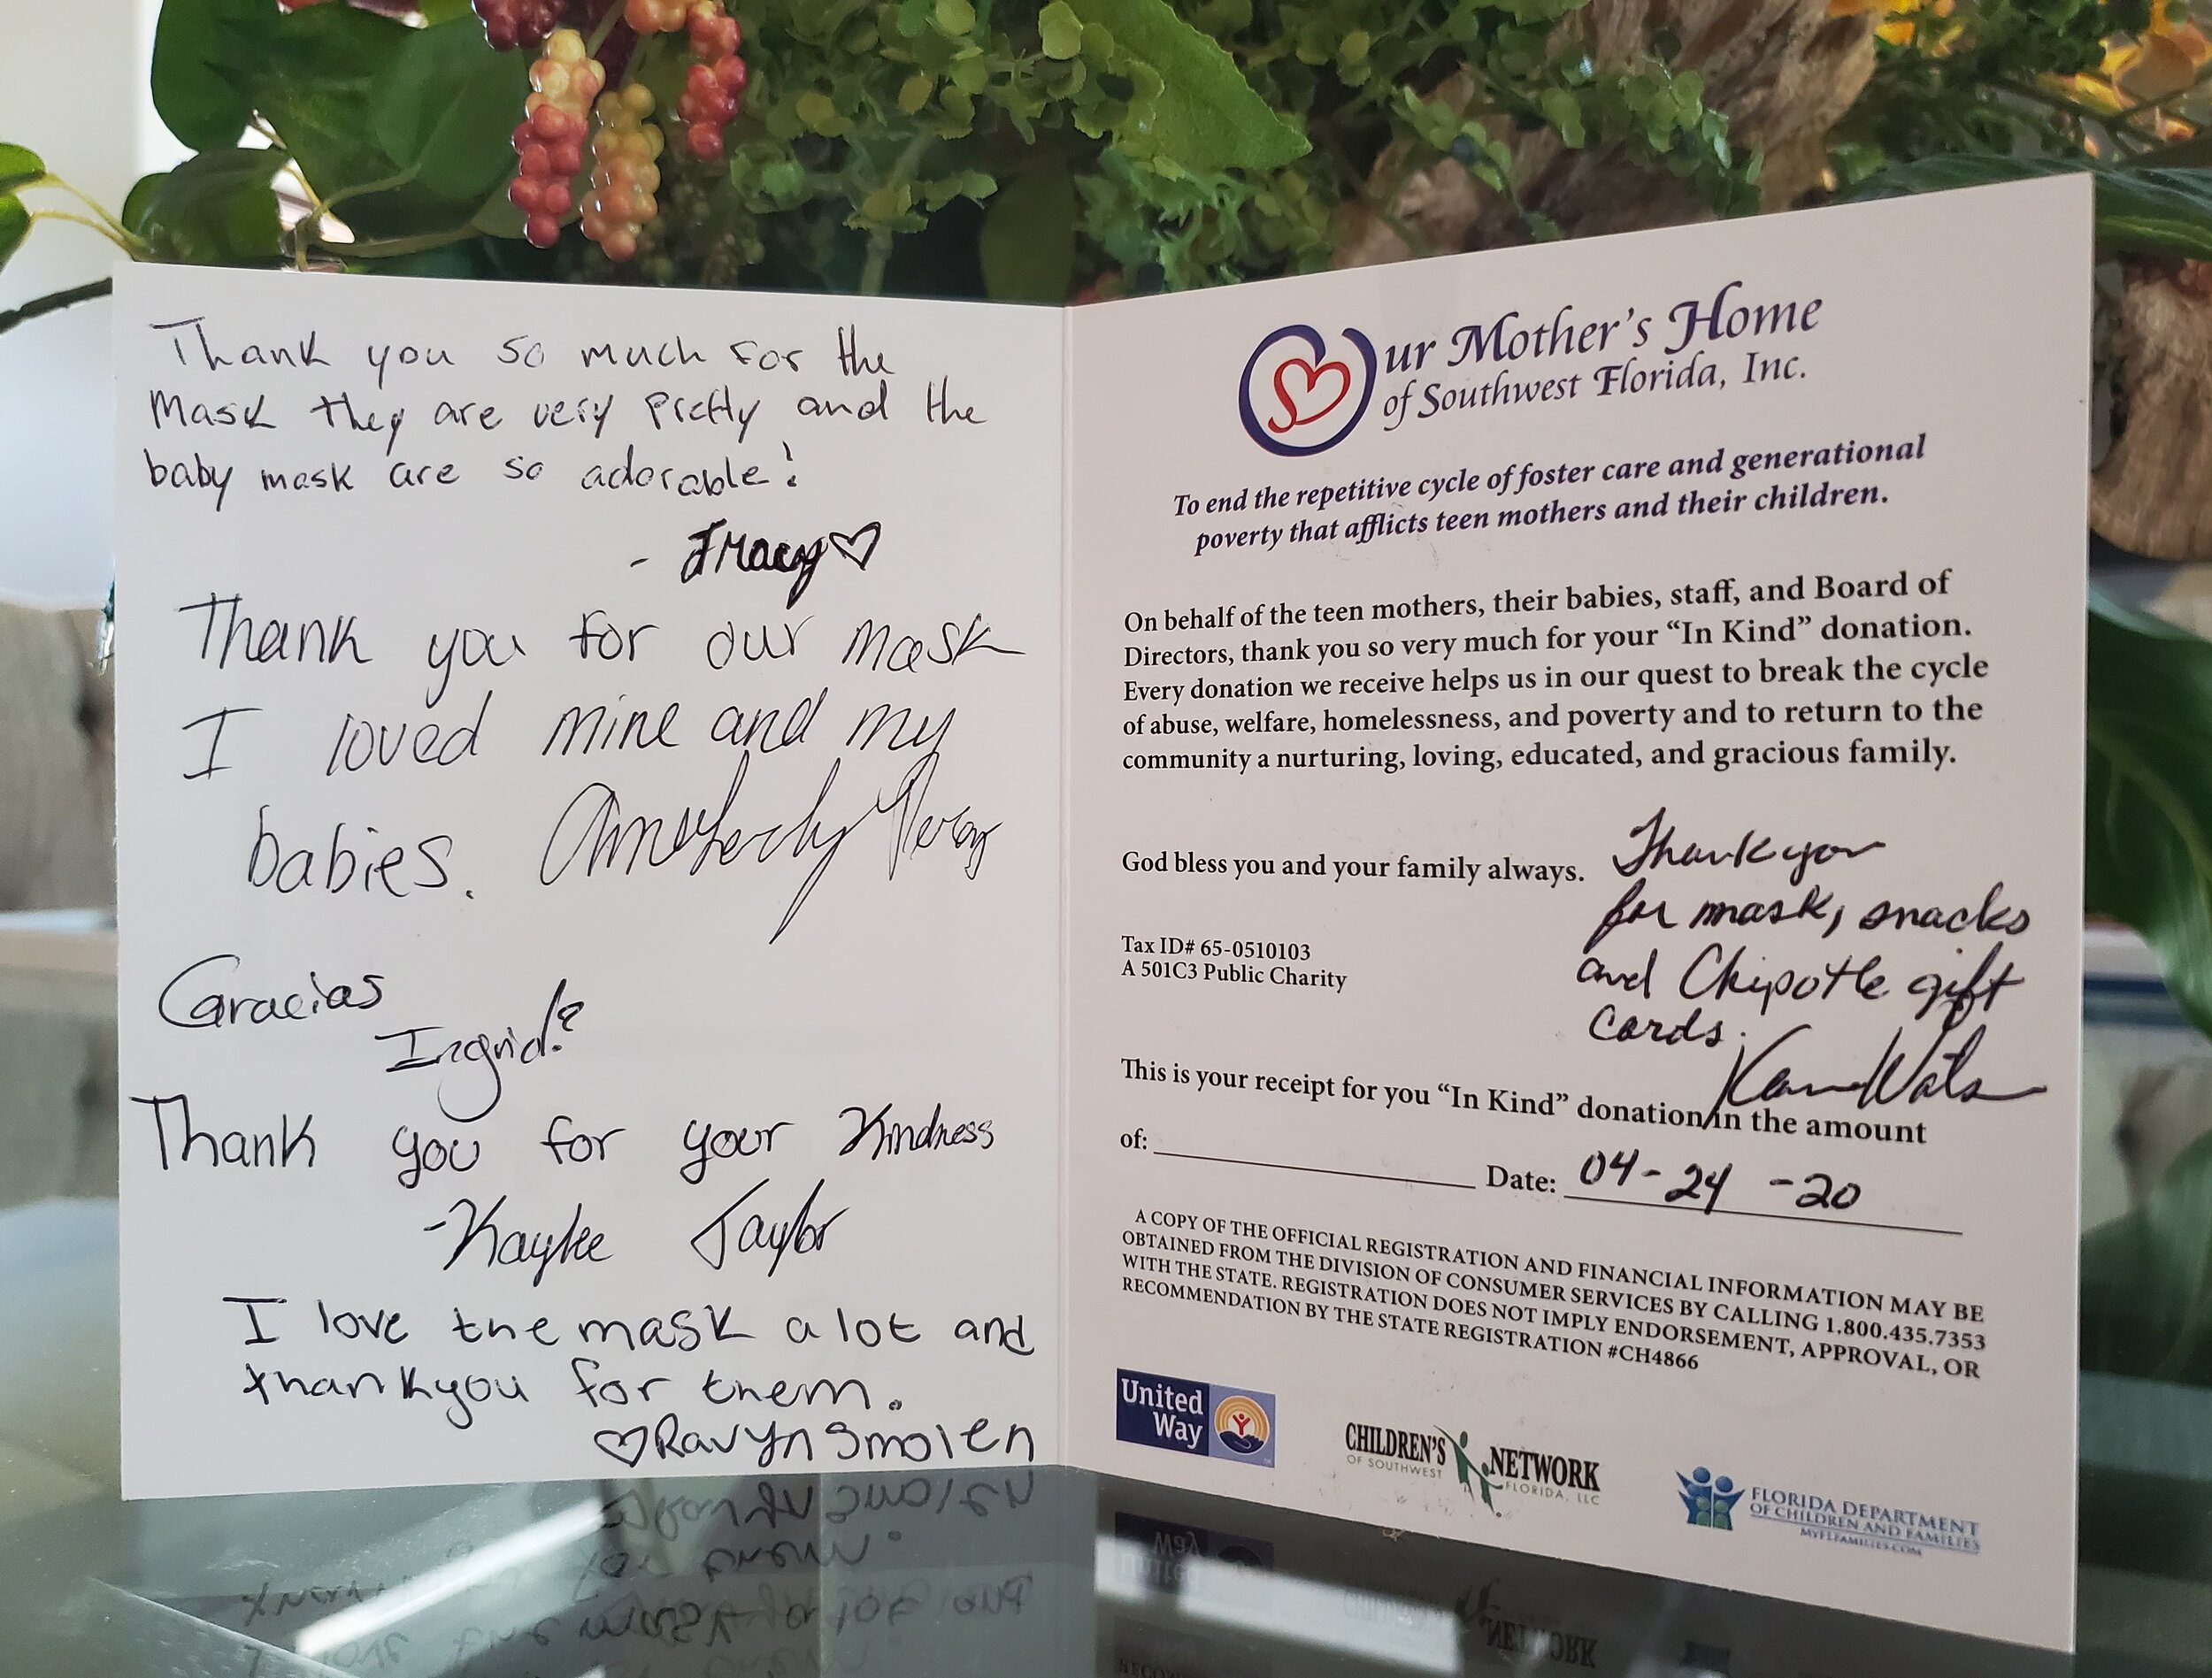 Thank you so much for the
Mask they are very pretty and the
baby mask are so adorable!
- Tracy♡
Thank you for our mask
I loved mine and my
babies.
Gracias
Ingrid
Thank you for your Kindness
-Kaylee Taylor
I love the mask a lot and
thankyou for them.
♡Ravyn Smolen
Our Mother's Home
of Southwest Florida, Inc.
To end the repetitive cycle of foster care and generational
poverty that afflicts teen mothers and their children.
On behalf of the teen mothers, their babies, staff, and Board of
Directors, thank you so very much for your “In Kind” donation.
Every donation we receive helps us in our quest to break the cycle
of abuse, welfare, homelessness, and poverty and to return to the
community a nurturing, loving, educated, and gracious family.
God bless you and your family always.
Thank you
for mask, snacks
and Chipotle gift
cards.
Tax ID# 65-0510103
A 501C3 Public Charity
This is your receipt for you “In Kind” donation in the amount
of: Date: 04-24-20
A COPY OF THE OFFICIAL REGISTRATION AND FINANCIAL INFORMATION MAY BE
OBTAINED FROM THE DIVISION OF CONSUMER SERVICES BY CALLING 1.800.435.7353
WITH THE STATE. REGISTRATION DOES NOT IMPLY ENDORSEMENT, APPROVAL, OR
RECOMMENDATION BY THE STATE REGISTRATION #CH4866
United
Way
CHILDREN'S NETWORK
OF SOUTHWEST FLORIDA, LLC
FLORIDA DEPARTMENT
OF CHILDREN AND FAMILIES
MYFLFAMILIES.COM